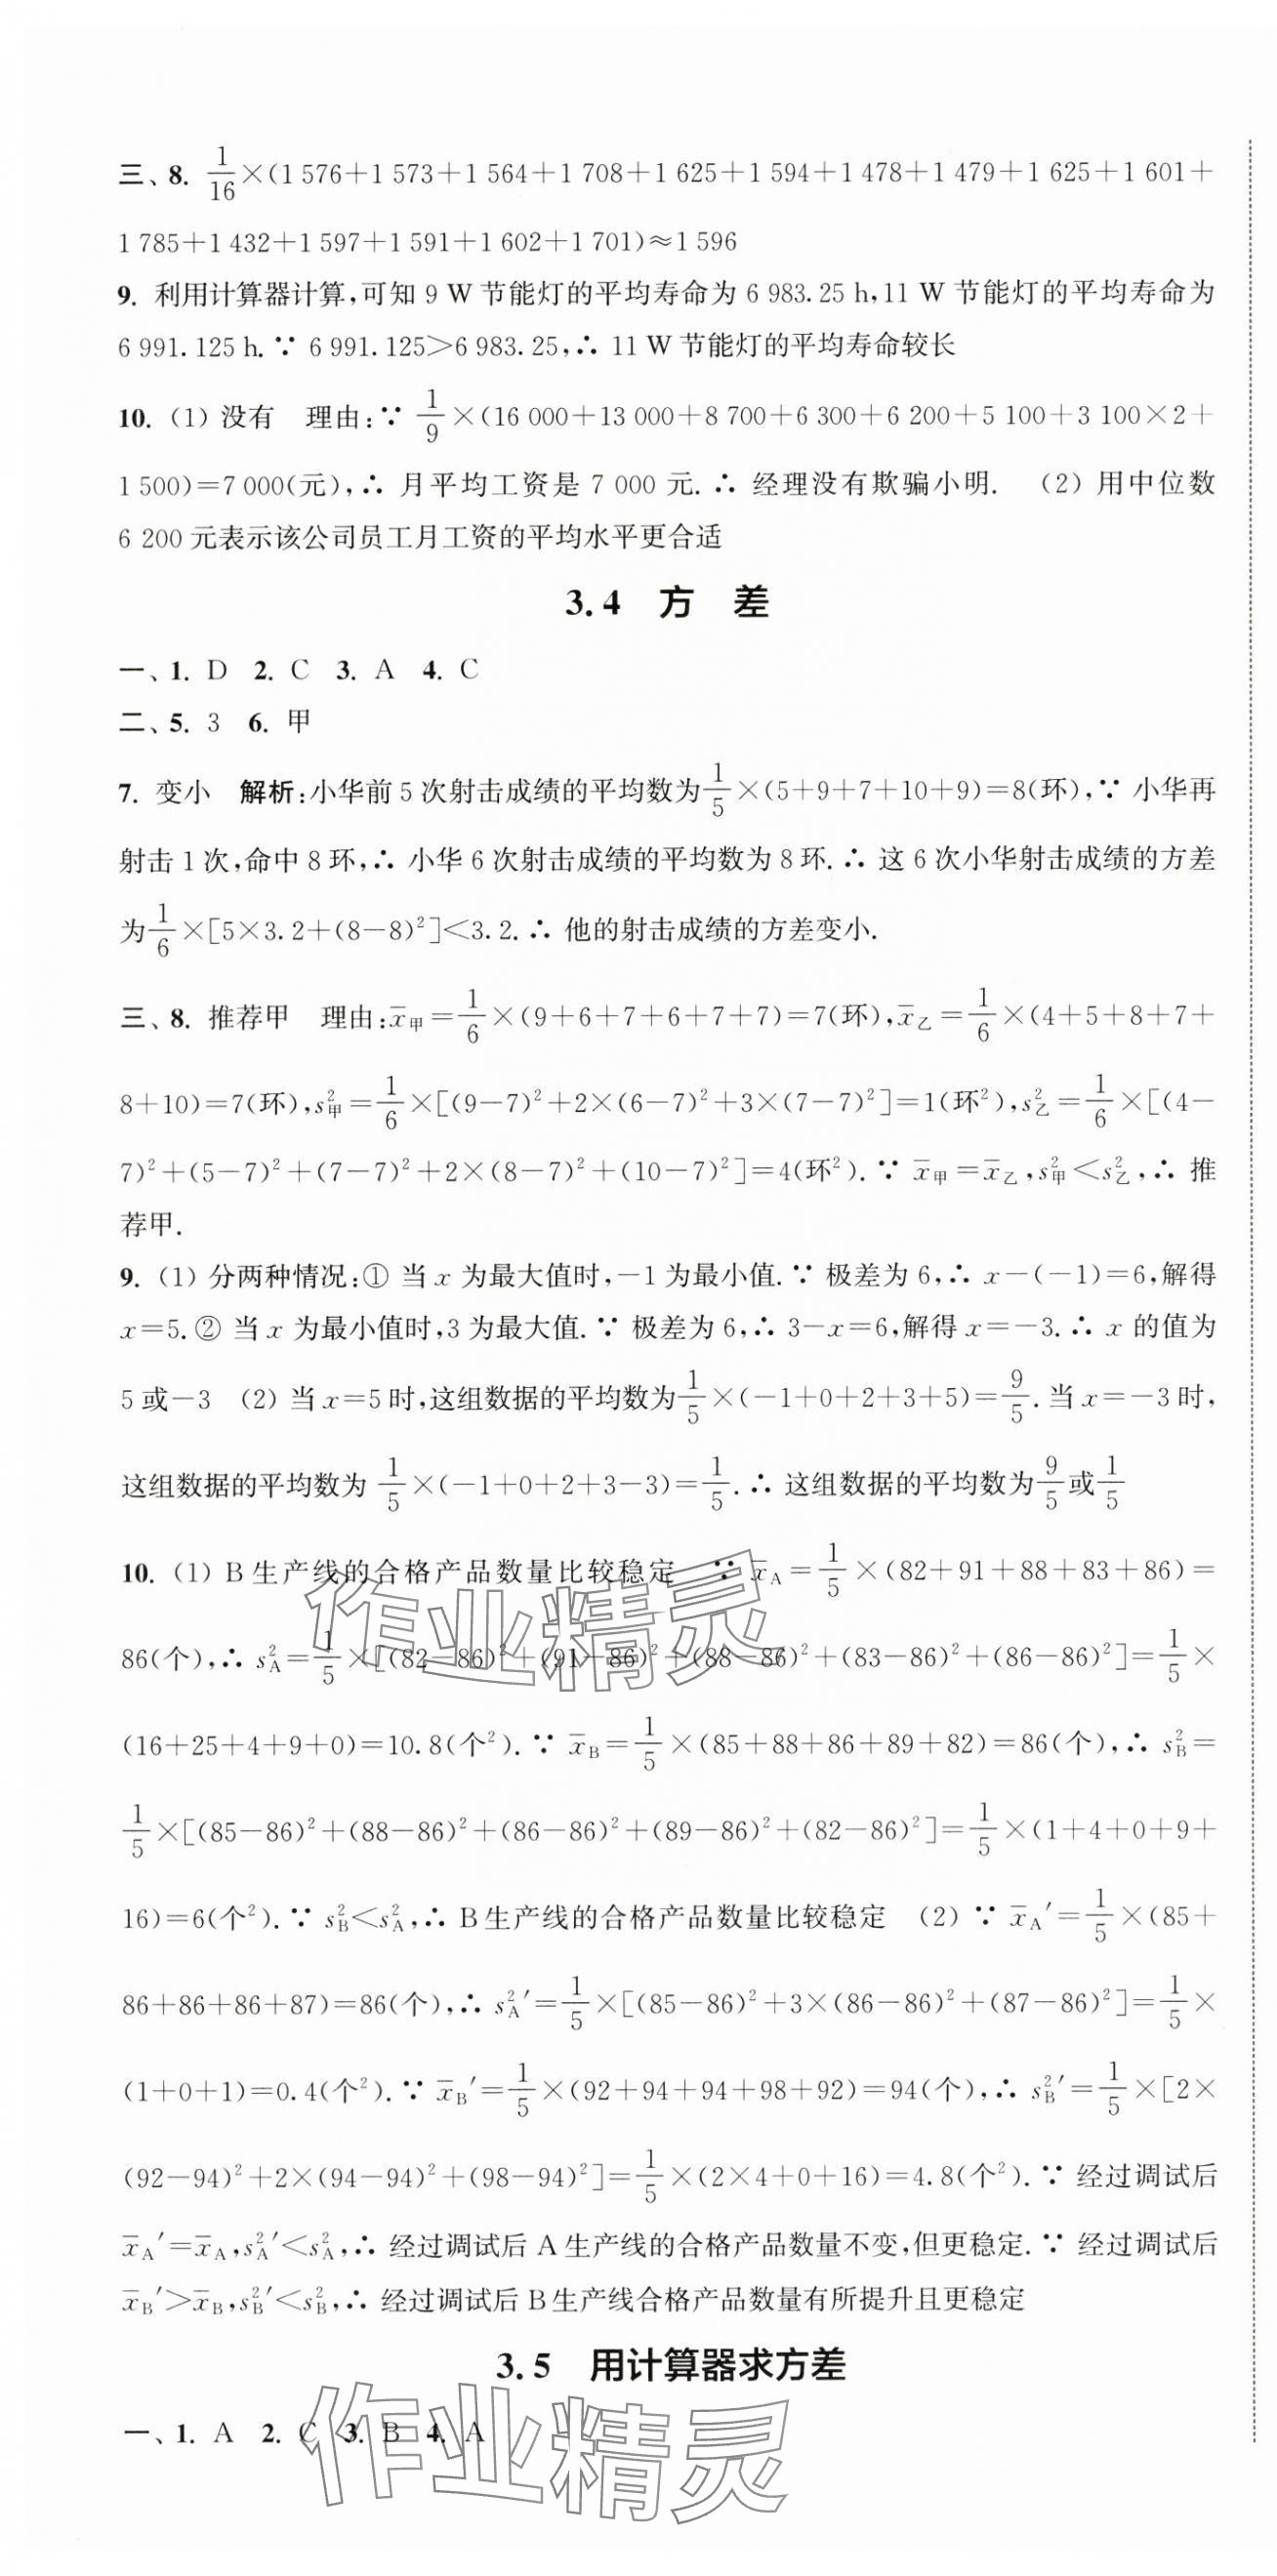 三、8. 1/16×(1 576+1 573+1 564+1 708+1 625+1 594+1 478+1 479+1 625+1 601+
1 785+1 432+1 597+1 591+1 602+1 701)≈1 596
9. 利用计算器计算,可知 9 W 节能灯的平均寿命为 6 983.25 h,11 W 节能灯的平均寿命为
6 991.125 h.∵ 6 991.125>6 983.25,∴ 11 W 节能灯的平均寿命较长
10. (1) 没有　理由:∵ 1/9×(16 000+13 000+8 700+6 300+6 200+5 100+3 100×2+
1 500)=7 000(元),∴ 月平均工资是 7 000 元.∴ 经理没有欺骗小明.　(2) 用中位数
6 200 元表示该公司员工月工资的平均水平更合适
3.4　方　差
一、1. D　2. C　3. A　4. C
二、5. 3　6. 甲
7. 变小　解析:小华前 5 次射击成绩的平均数为1/5×(5+9+7+10+9)=8(环),∵ 小华再
射击 1 次,命中 8 环,∴ 小华 6 次射击成绩的平均数为 8 环.∴ 这 6 次小华射击成绩的方差
为1/6×[5×3.2+(8-8)²]<3.2.∴ 他的射击成绩的方差变小.
三、8. 推荐甲　理由:x̄甲=1/6×(9+6+7+6+7+7)=7(环),x̄乙=1/6×(4+5+8+7+
8+10)=7(环),s²甲=1/6×[(9-7)²+2×(6-7)²+3×(7-7)²]=1(环²),s²乙=1/6×[(4-
7)²+(5-7)²+(7-7)²+2×(8-7)²+(10-7)²]=4(环²).∵ x̄甲=x̄乙,s²甲<s²乙,∴ 推
荐甲.
9. (1) 分两种情况:① 当 x 为最大值时,-1 为最小值.∵ 极差为 6,∴ x-(-1)=6,解得
x=5.② 当 x 为最小值时,3 为最大值.∵ 极差为 6,∴ 3-x=6,解得 x=-3.∴ x 的值为
5 或-3　(2) 当 x=5 时,这组数据的平均数为1/5×(-1+0+2+3+5)=9/5.当 x=-3 时,
这组数据的平均数为 1/5×(-1+0+2+3-3)=1/5.∴ 这组数据的平均数为9/5或1/5
10. (1) B 生产线的合格产品数量比较稳定　∵ x̄A=1/5×(82+91+88+83+86)=
86(个),∴ s²A=1/5×[(82-86)²+(91-86)²+(88-86)²+(83-86)²+(86-86)²]=1/5×
(16+25+4+9+0)=10.8(个²).∵ x̄B=1/5×(85+88+86+89+82)=86(个),∴ s²B=
1/5×[(85-86)²+(88-86)²+(86-86)²+(89-86)²+(82-86)²]=1/5×(1+4+0+9+
16)=6(个²).∵ s²B<s²A,∴ B 生产线的合格产品数量比较稳定　(2) ∵ x̄A′=1/5×(85+
86+86+86+87)=86(个),∴ s²A′=1/5×[(85-86)²+3×(86-86)²+(87-86)²]=1/5×
(1+0+1)=0.4(个²).∵ x̄B′=1/5×(92+94+94+98+92)=94(个),∴ s²B′=1/5×[2×
(92-94)²+2×(94-94)²+(98-94)²]=1/5×(2×4+0+16)=4.8(个²).∵ 经过调试后
x̄A′=x̄A,s²A′<s²A,∴ 经过调试后 A 生产线的合格产品数量不变,但更稳定.∵ 经过调试后
x̄B′>x̄B,s²B′<s²B,∴ 经过调试后 B 生产线合格产品数量有所提升且更稳定
作业精灵
3.5　用计算器求方差
一、1. A　2. C　3. B　4. A
作业精灵